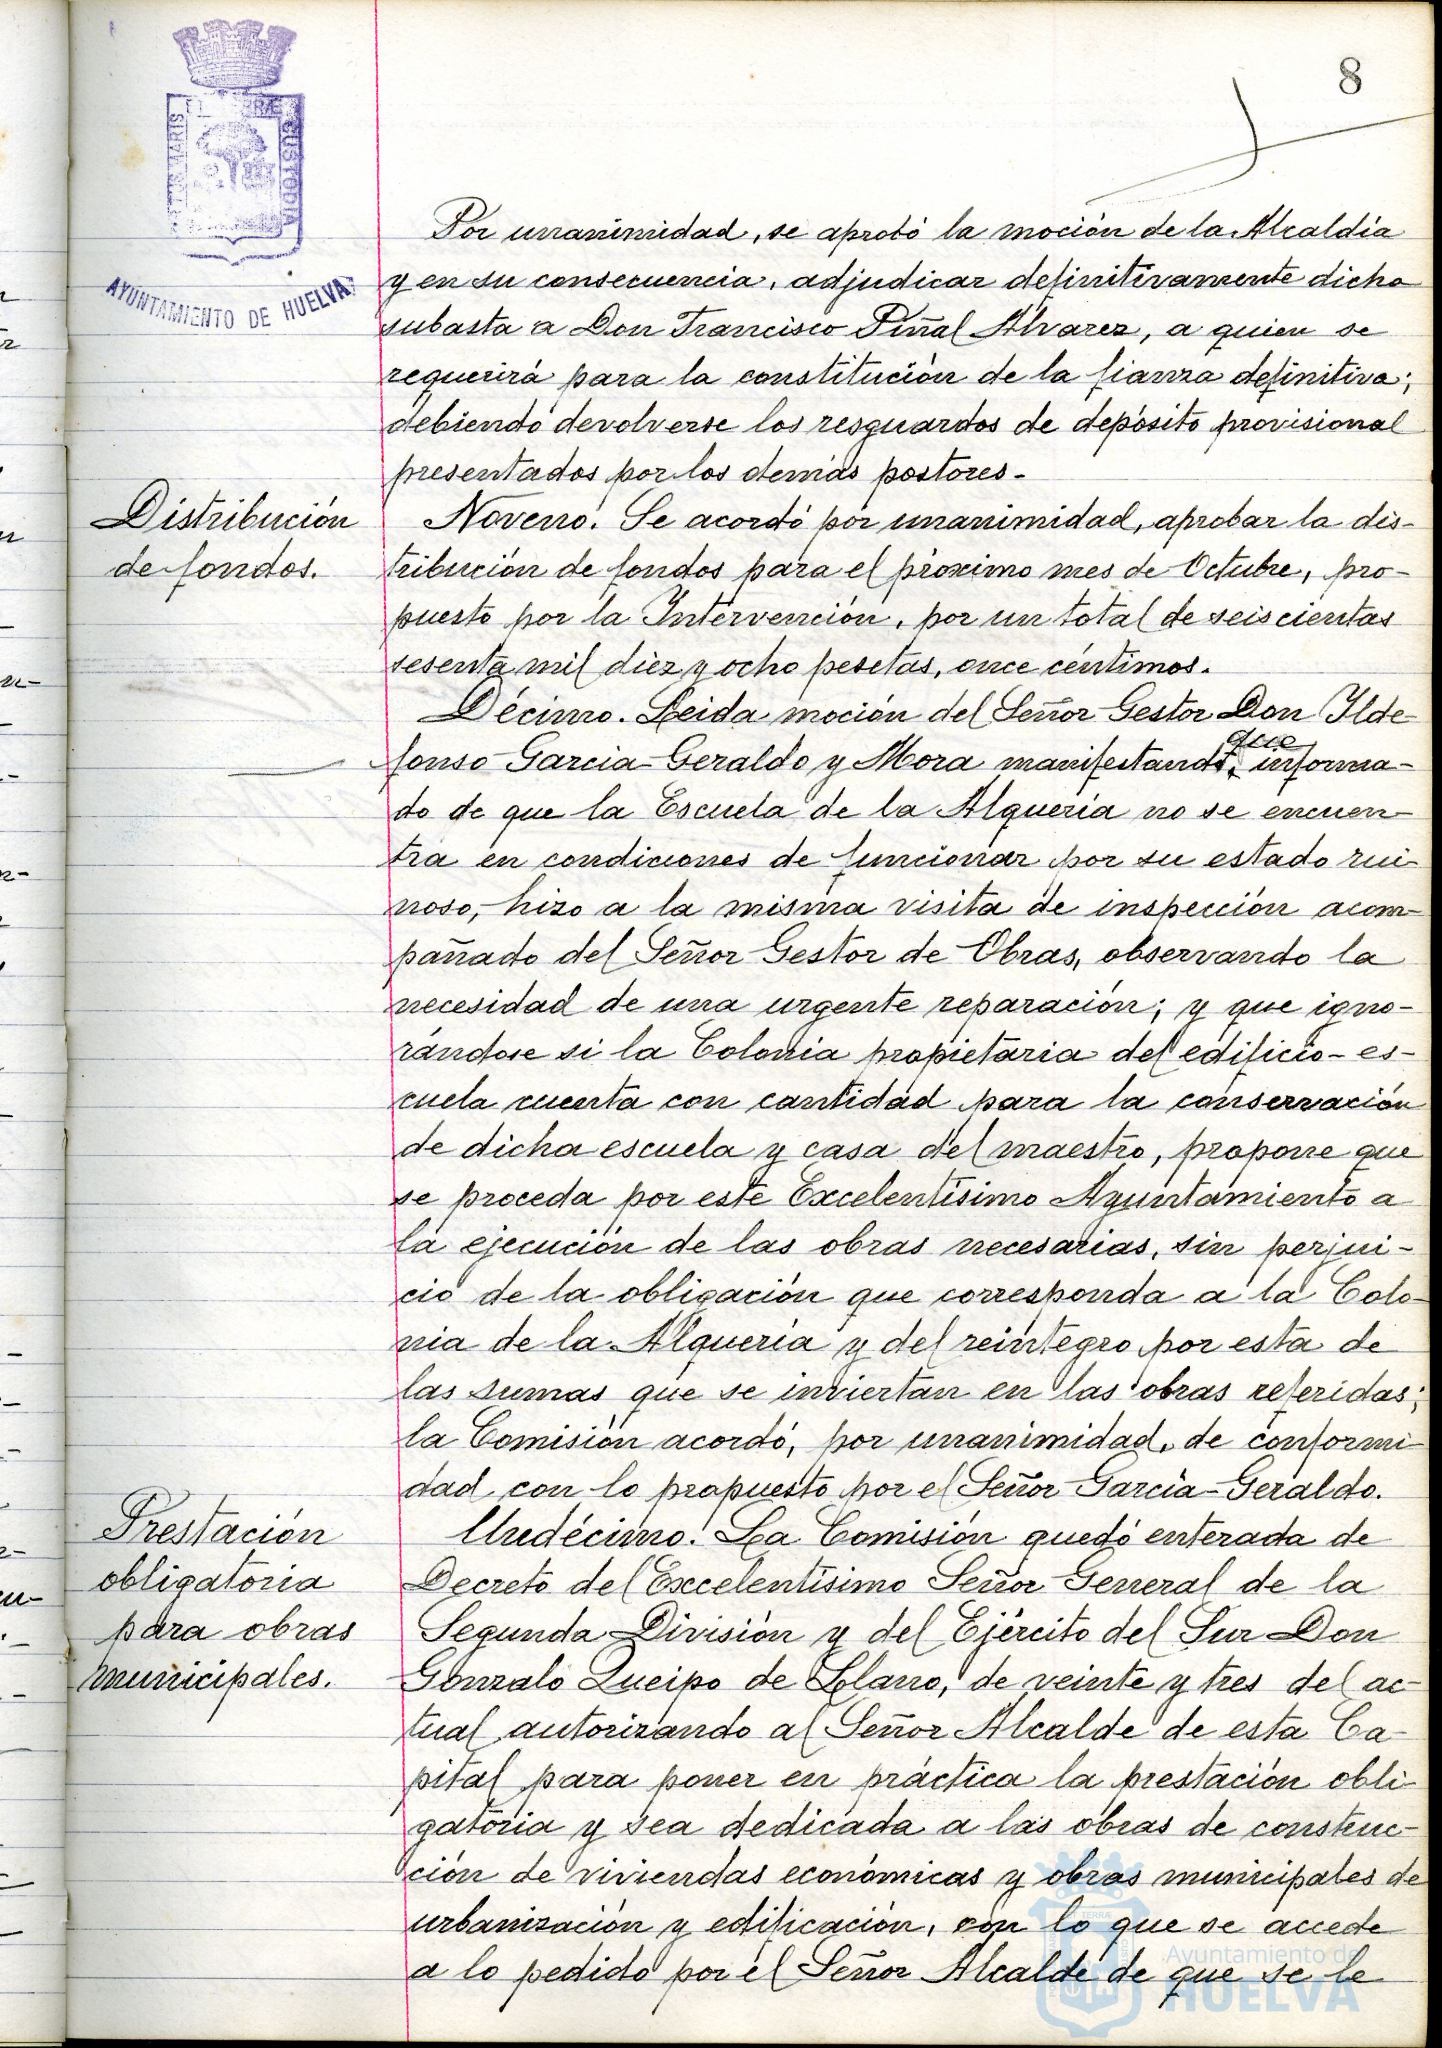 8
PORTUS MARIS ET TERRÆ CUSTODIA
AYUNTAMIENTO DE HUELVA
Por unanimidad, se aprobó la moción de la Alcaldía
y en su consecuencia, adjudicar definitivamente dicha
subasta a Don Francisco Piñal Alvarez, a quien se
requerirá para la constitución de la fianza definitiva;
debiendo devolverse los resguardos de depósito provisional
presentados por los demás postores.-
Distribución
de fondos.
Noveno. Se acordó por unanimidad, aprobar la dis-
tribución de fondos para el próximo mes de Octubre, pro-
puesto por la Intervención, por un total de seiscientas
sesenta mil diez y ocho pesetas, once céntimos.
Décimo. Leida moción del Señor Gestor Don Ilde-
fonso Garcia-Geraldo y Mora manifestando, que informa-
do de que la Escuela de la Alquería no se encuen-
tra en condiciones de funcionar por su estado rui-
noso, hizo a la misma visita de inspección acom-
pañado del Señor Gestor de Obras, observando la
necesidad de una urgente reparación; y que igno-
rándose si la Colonia propietaria del edificio-es-
cuela cuenta con cantidad para la conservación
de dicha escuela y casa del maestro, propone que
se proceda por este Excelentísimo Ayuntamiento a
la ejecución de las obras necesarias, sin perjui-
cio de la obligación que corresponda a la Colo-
nia de la Alquería y del reintegro por esta de
las sumas que se inviertan en las obras referidas;
la Comisión acordó, por unanimidad, de conformi-
dad con lo propuesto por el Señor García-Geraldo.
Prestación
obligatoria
para obras
municipales.
Undécimo. La Comisión quedó enterada de
Decreto del Excelentísimo Señor General de la
Segunda División y del Ejército del Sur Don
Gonzalo Queipo de Llano, de veinte y tres del ac-
tual autorizando al Señor Alcalde de esta Ca-
pital para poner en práctica la prestación obli-
gatoria y sea dedicada a las obras de construc-
ción de viviendas económicas y obras municipales de
urbanización y edificación, con lo que se accede
a lo pedido por el Señor Alcalde de que se le
Ayuntamiento de
HUELVA